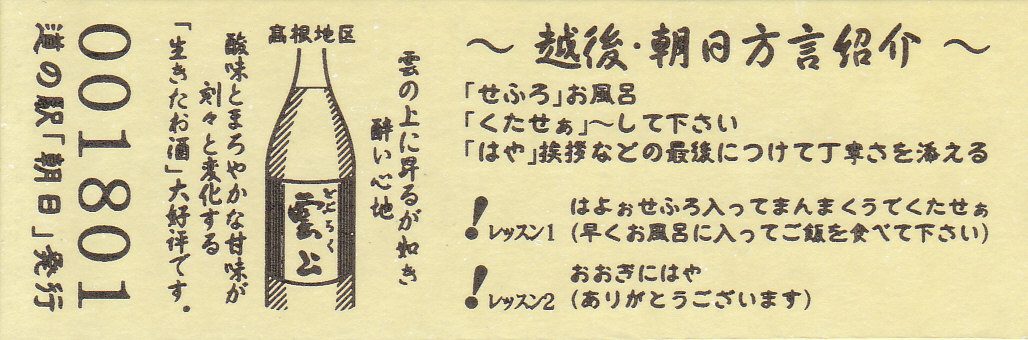 ～ 越後・朝日方言紹介 ～
「せふろ」お風呂
「くたせぁ」～して下さい
「はや」挨拶などの最後につけて丁寧さを添える
！レッスン1
はよぉせふろ入ってまんまくうてくたせぁ
(早くお風呂に入ってご飯を食べて下さい)
！レッスン2
おおぎにはや
(ありがとうございます)
雲の上に昇るが如き
酔い心地
高根地区
どぶろく
雲公
酸味とまろやかな甘味が
刻々と変化する
「生きたお酒」大好評です。
001801
道の駅「朝日」発行